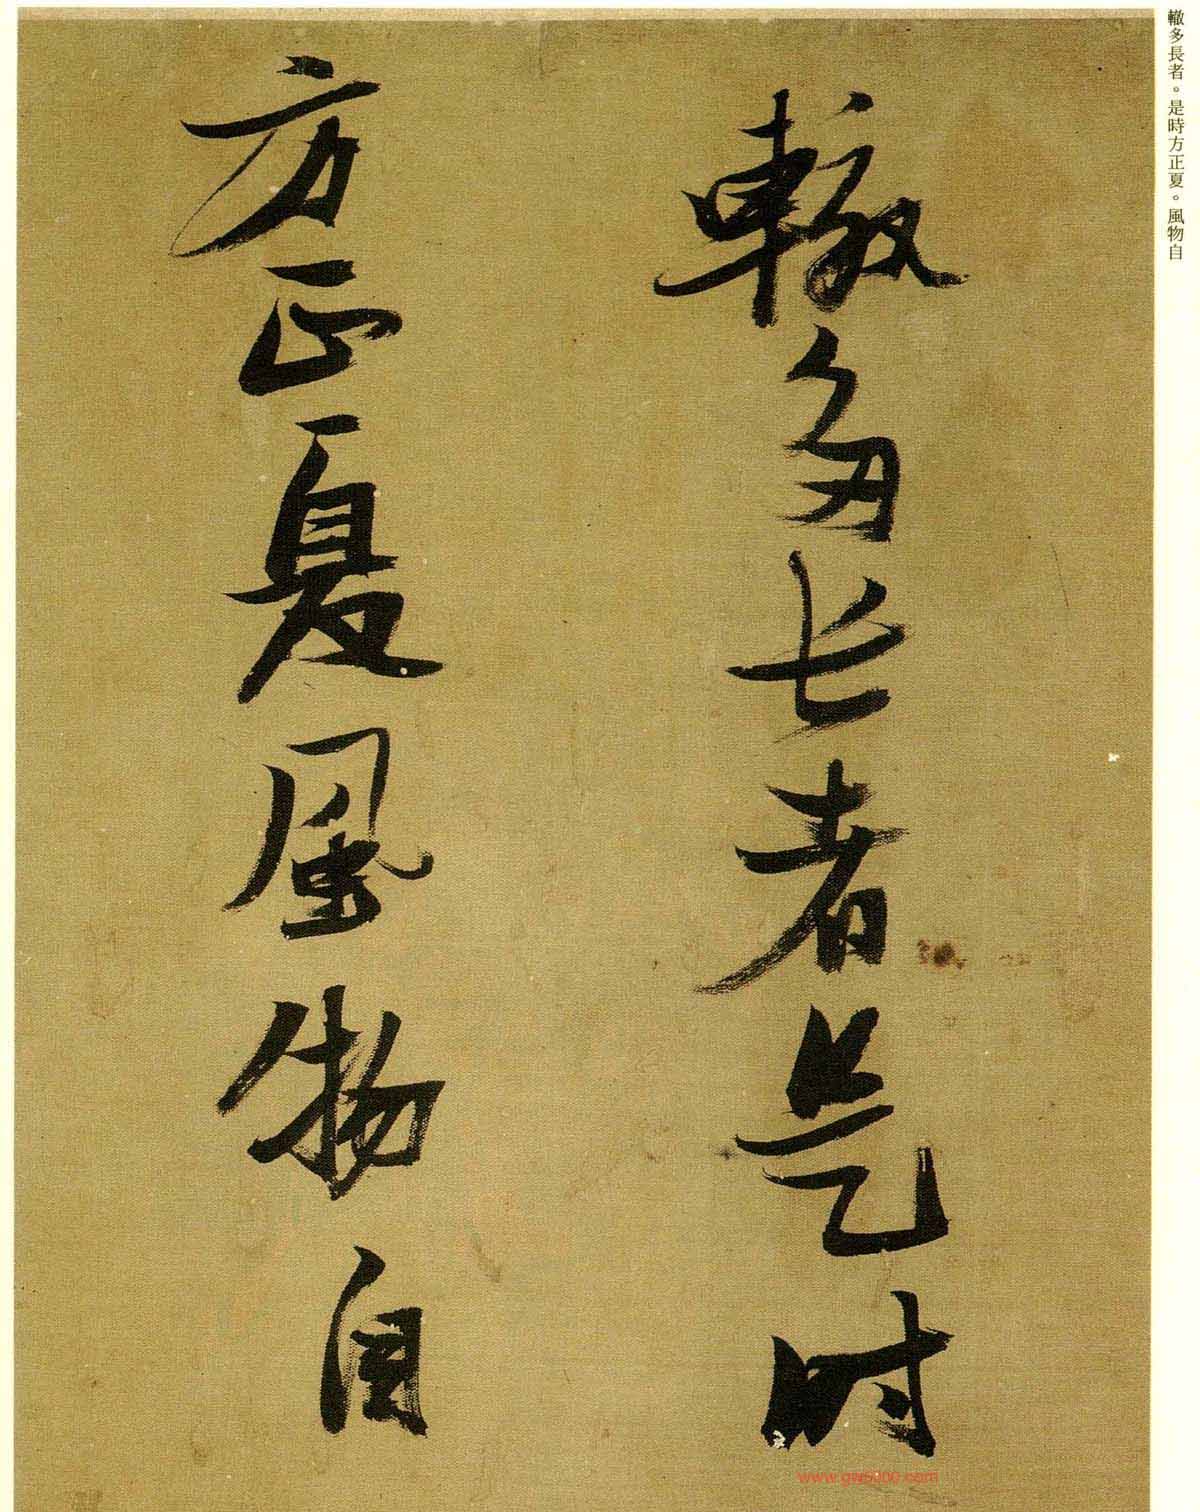 轍多長者。是時方正夏。風物自
轍多长者是时
方正夏風物自
www.gw5000.com